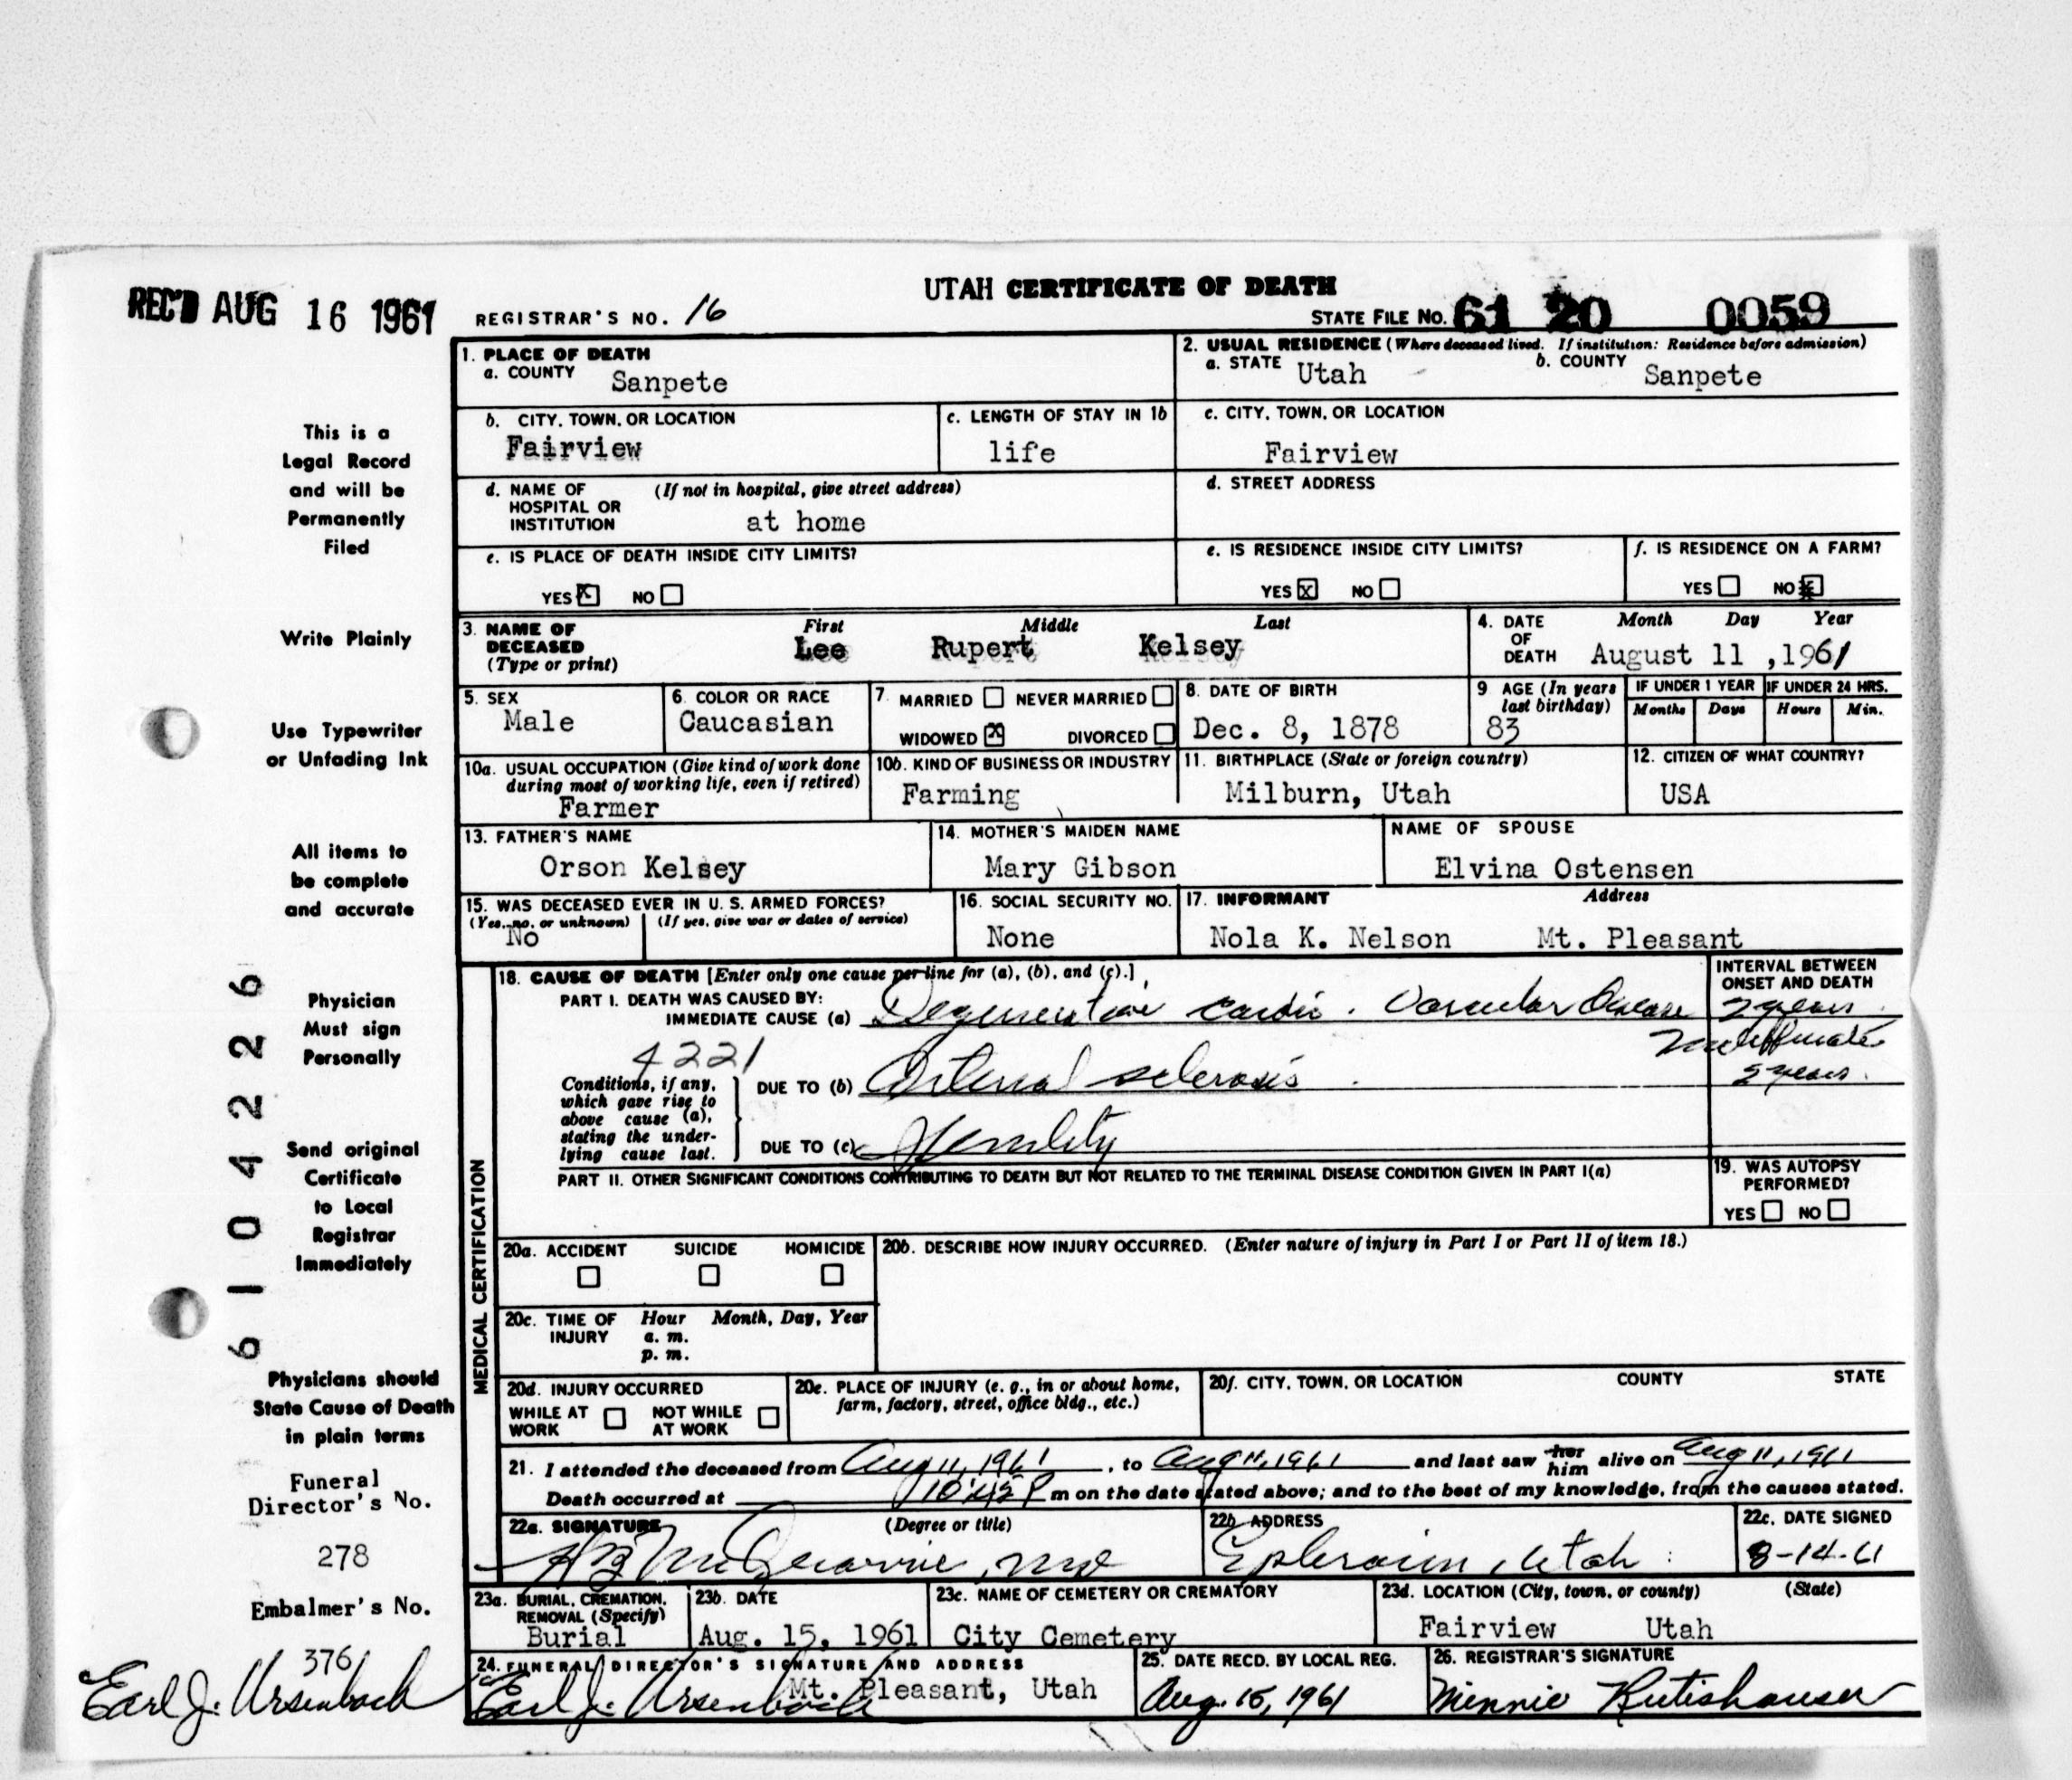 UTAH CERTIFICATE OF DEATH
REC'D AUG 16 1961 REGISTRAR'S NO. 16 STATE FILE No. 61 20 0059
1. PLACE OF DEATH
a. COUNTY Sanpete
2. USUAL RESIDENCE (Where deceased lived. If institution: Residence before admission)
a. STATE Utah b. COUNTY Sanpete
b. CITY, TOWN, OR LOCATION
Fairview
c. LENGTH OF STAY IN 1b
life
c. CITY, TOWN, OR LOCATION
Fairview
d. NAME OF HOSPITAL OR INSTITUTION (If not in hospital, give street address)
at home
d. STREET ADDRESS
e. IS PLACE OF DEATH INSIDE CITY LIMITS?
YES X NO
e. IS RESIDENCE INSIDE CITY LIMITS?
YES X NO
f. IS RESIDENCE ON A FARM?
YES NO X
3. NAME OF DECEASED (Type or print)
First Middle Last
Lee Rupert Kelsey
4. DATE OF DEATH Month Day Year
August 11 ,1961
5. SEX
Male
6. COLOR OR RACE
Caucasian
7. MARRIED NEVER MARRIED
WIDOWED X DIVORCED
8. DATE OF BIRTH
Dec. 8, 1878
9 AGE (In years last birthday)
83
IF UNDER 1 YEAR IF UNDER 24 HRS.
Months Days Hours Min.
10a. USUAL OCCUPATION (Give kind of work done during most of working life, even if retired)
Farmer
10b. KIND OF BUSINESS OR INDUSTRY
Farming
11. BIRTHPLACE (State or foreign country)
Milburn, Utah
12. CITIZEN OF WHAT COUNTRY?
USA
13. FATHER'S NAME
Orson Kelsey
14. MOTHER'S MAIDEN NAME
Mary Gibson
NAME OF SPOUSE
Elvina Ostensen
15. WAS DECEASED EVER IN U. S. ARMED FORCES?
(Yes, no, or unknown) (If yes, give war or dates of service)
No
16. SOCIAL SECURITY NO.
None
17. INFORMANT Address
Nola K. Nelson Mt. Pleasant
MEDICAL CERTIFICATION
18. CAUSE OF DEATH [Enter only one cause per line for (a), (b), and (c).]
INTERVAL BETWEEN ONSET AND DEATH
PART I. DEATH WAS CAUSED BY:
IMMEDIATE CAUSE (a) Degenerative cardio. Vascular Disease 2 years
4221
Conditions, if any, which gave rise to above cause (a), stating the underlying cause last.
DUE TO (b) Arterial sclerosis years.
DUE TO (c)
PART II. OTHER SIGNIFICANT CONDITIONS CONTRIBUTING TO DEATH BUT NOT RELATED TO THE TERMINAL DISEASE CONDITION GIVEN IN PART I(a)
19. WAS AUTOPSY PERFORMED?
YES NO
20a. ACCIDENT SUICIDE HOMICIDE
20b. DESCRIBE HOW INJURY OCCURRED. (Enter nature of injury in Part I or Part II of item 18.)
20c. TIME OF INJURY Hour Month, Day, Year
a. m.
p. m.
20d. INJURY OCCURRED
WHILE AT WORK NOT WHILE AT WORK
20e. PLACE OF INJURY (e. g., in or about home, farm, factory, street, office bldg., etc.)
20f. CITY, TOWN, OR LOCATION COUNTY STATE
21. I attended the deceased from Aug 11, 1961, to Aug 11, 1961 and last saw her him alive on Aug 11, 1961
Death occurred at 10:45 P m on the date stated above; and to the best of my knowledge, from the causes stated.
22a. SIGNATURE (Degree or title)
McQuarrie, MD
22b. ADDRESS
Ephraim, Utah
22c. DATE SIGNED
8-14-61
23a. BURIAL, CREMATION, REMOVAL (Specify)
Burial
23b. DATE
Aug. 15, 1961
23c. NAME OF CEMETERY OR CREMATORY
City Cemetery
23d. LOCATION (City, town, or county) (State)
Fairview Utah
24. FUNERAL DIRECTOR'S SIGNATURE AND ADDRESS
Earl J. Ursenbach Mt. Pleasant, Utah
25. DATE RECD. BY LOCAL REG.
Aug. 15, 1961
26. REGISTRAR'S SIGNATURE
Minnie Rutishauser
This is a
Legal Record
and will be
Permanently
Filed
Write Plainly
Use Typewriter
or Unfading Ink
All items to
be complete
and accurate
Physician
Must sign
Personally
Send original
Certificate
to Local
Registrar
Immediately
Physicians should
State Cause of Death
in plain terms
Funeral
Director's No.
278
Embalmer's No.
376
Earl J. Ursenbach
61 04226